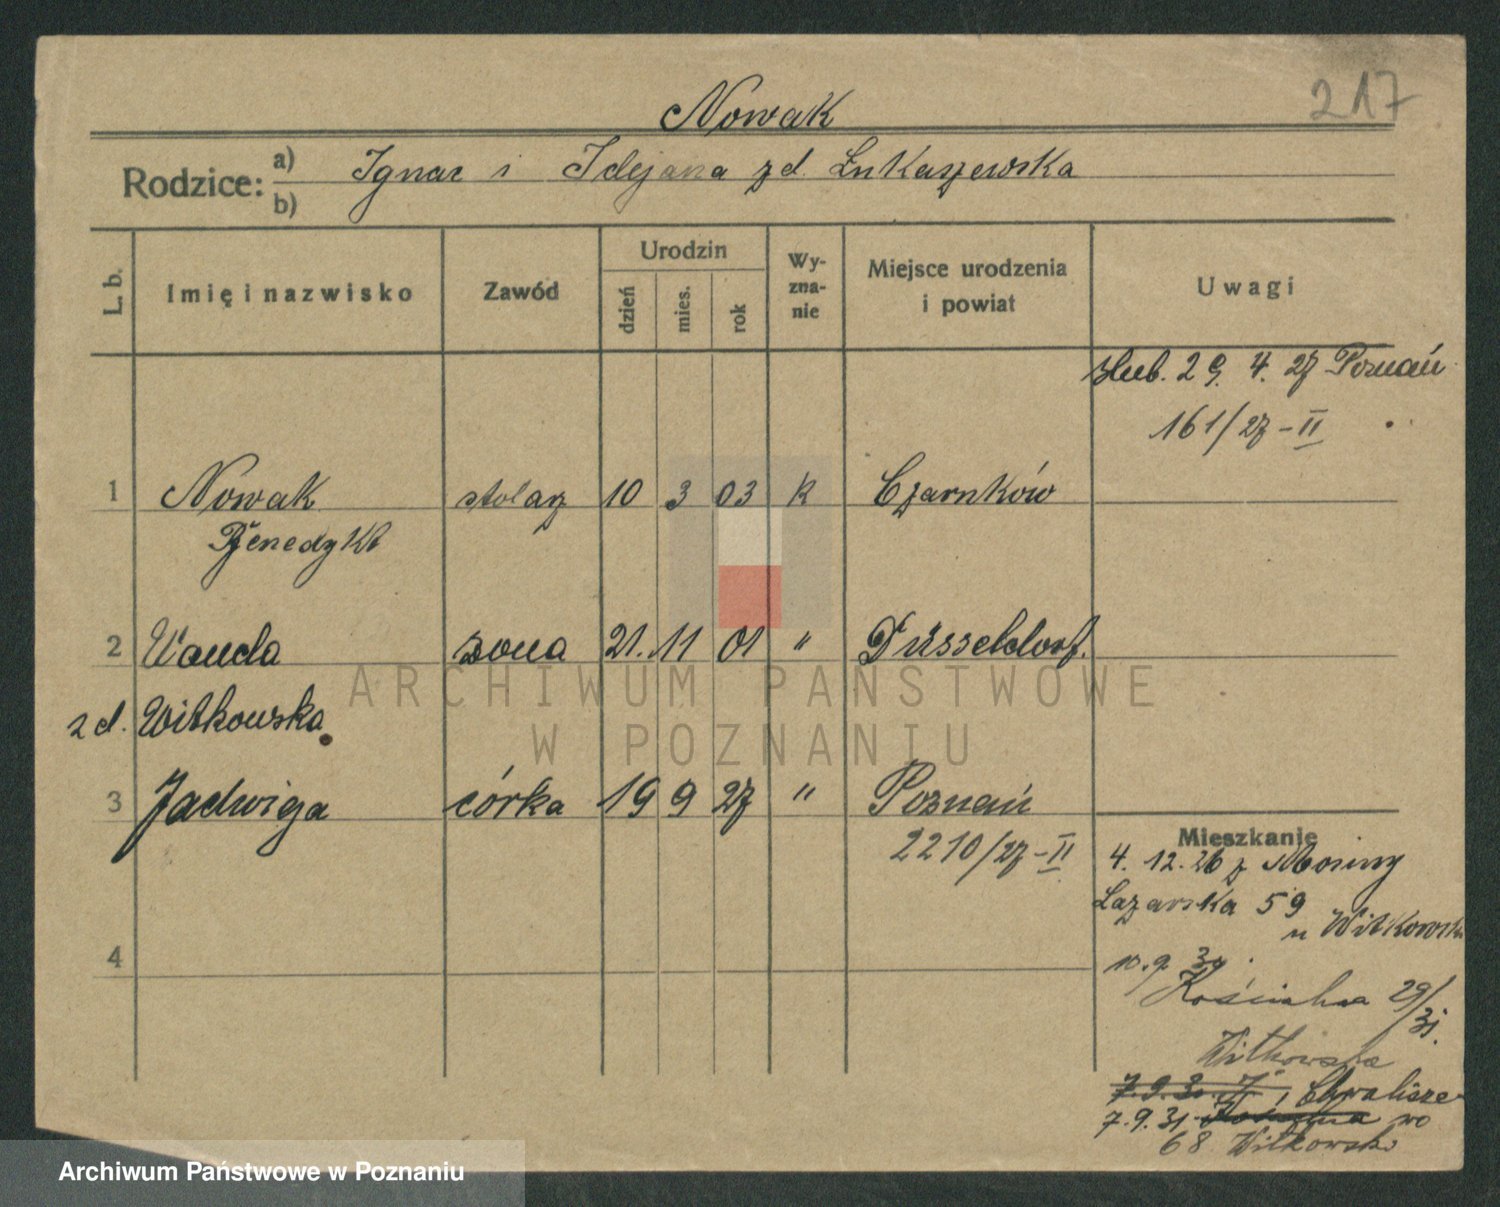 217
Nowak
Rodzice: a) Ignac i zd. Łukaszewska
b)
L. b. Imię i nazwisko Zawód Urodzin dzień mies. rok Wy-zna-nie Miejsce urodzenia i powiat Uwagi
słub. 29. 4. 27 Poznań
161/27-II
1 Nowak stolarz 10 3 03 k Czarnków
Benedykt
2 Wanda żona 21. 11 01 " Düsseldorf.
zd. Witkowska
3 Jadwiga córka 19 9 27 " Poznań
2210/27-II
Mieszkanie
4. 12. 26 z Mosiny
Łazarska 59
u Witkowski
4
10. 9. 30.
29/31.
Witkowska
7.9.3 Chwalisze
7.9.31. wo
68 Witkowski
ARCHIWUM PAŃSTWOWE
W POZNANIU
Archiwum Państwowe w Poznaniu